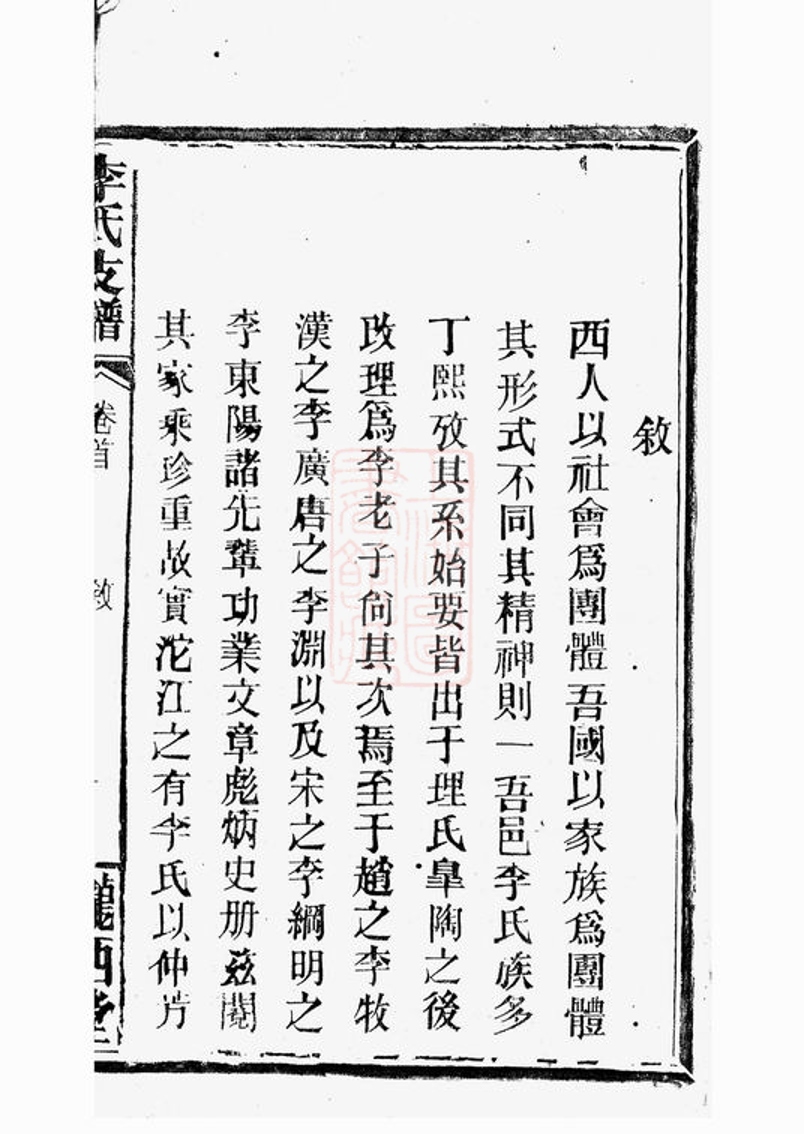 敘
西人以社會爲團體吾國以家族爲團體
其形式不同其精神則一吾邑李氏族多
丁熙攷其系始要皆出于理氏皐陶之後
改理爲李老子尙其次焉至于趙之李牧
漢之李廣唐之李淵以及宋之李綱明之
李東陽諸先輩功業文章彪炳史册茲閱
其家乘珍重故實沱江之有李氏以仲片
李氏支譜
卷首
敘
隴西堂